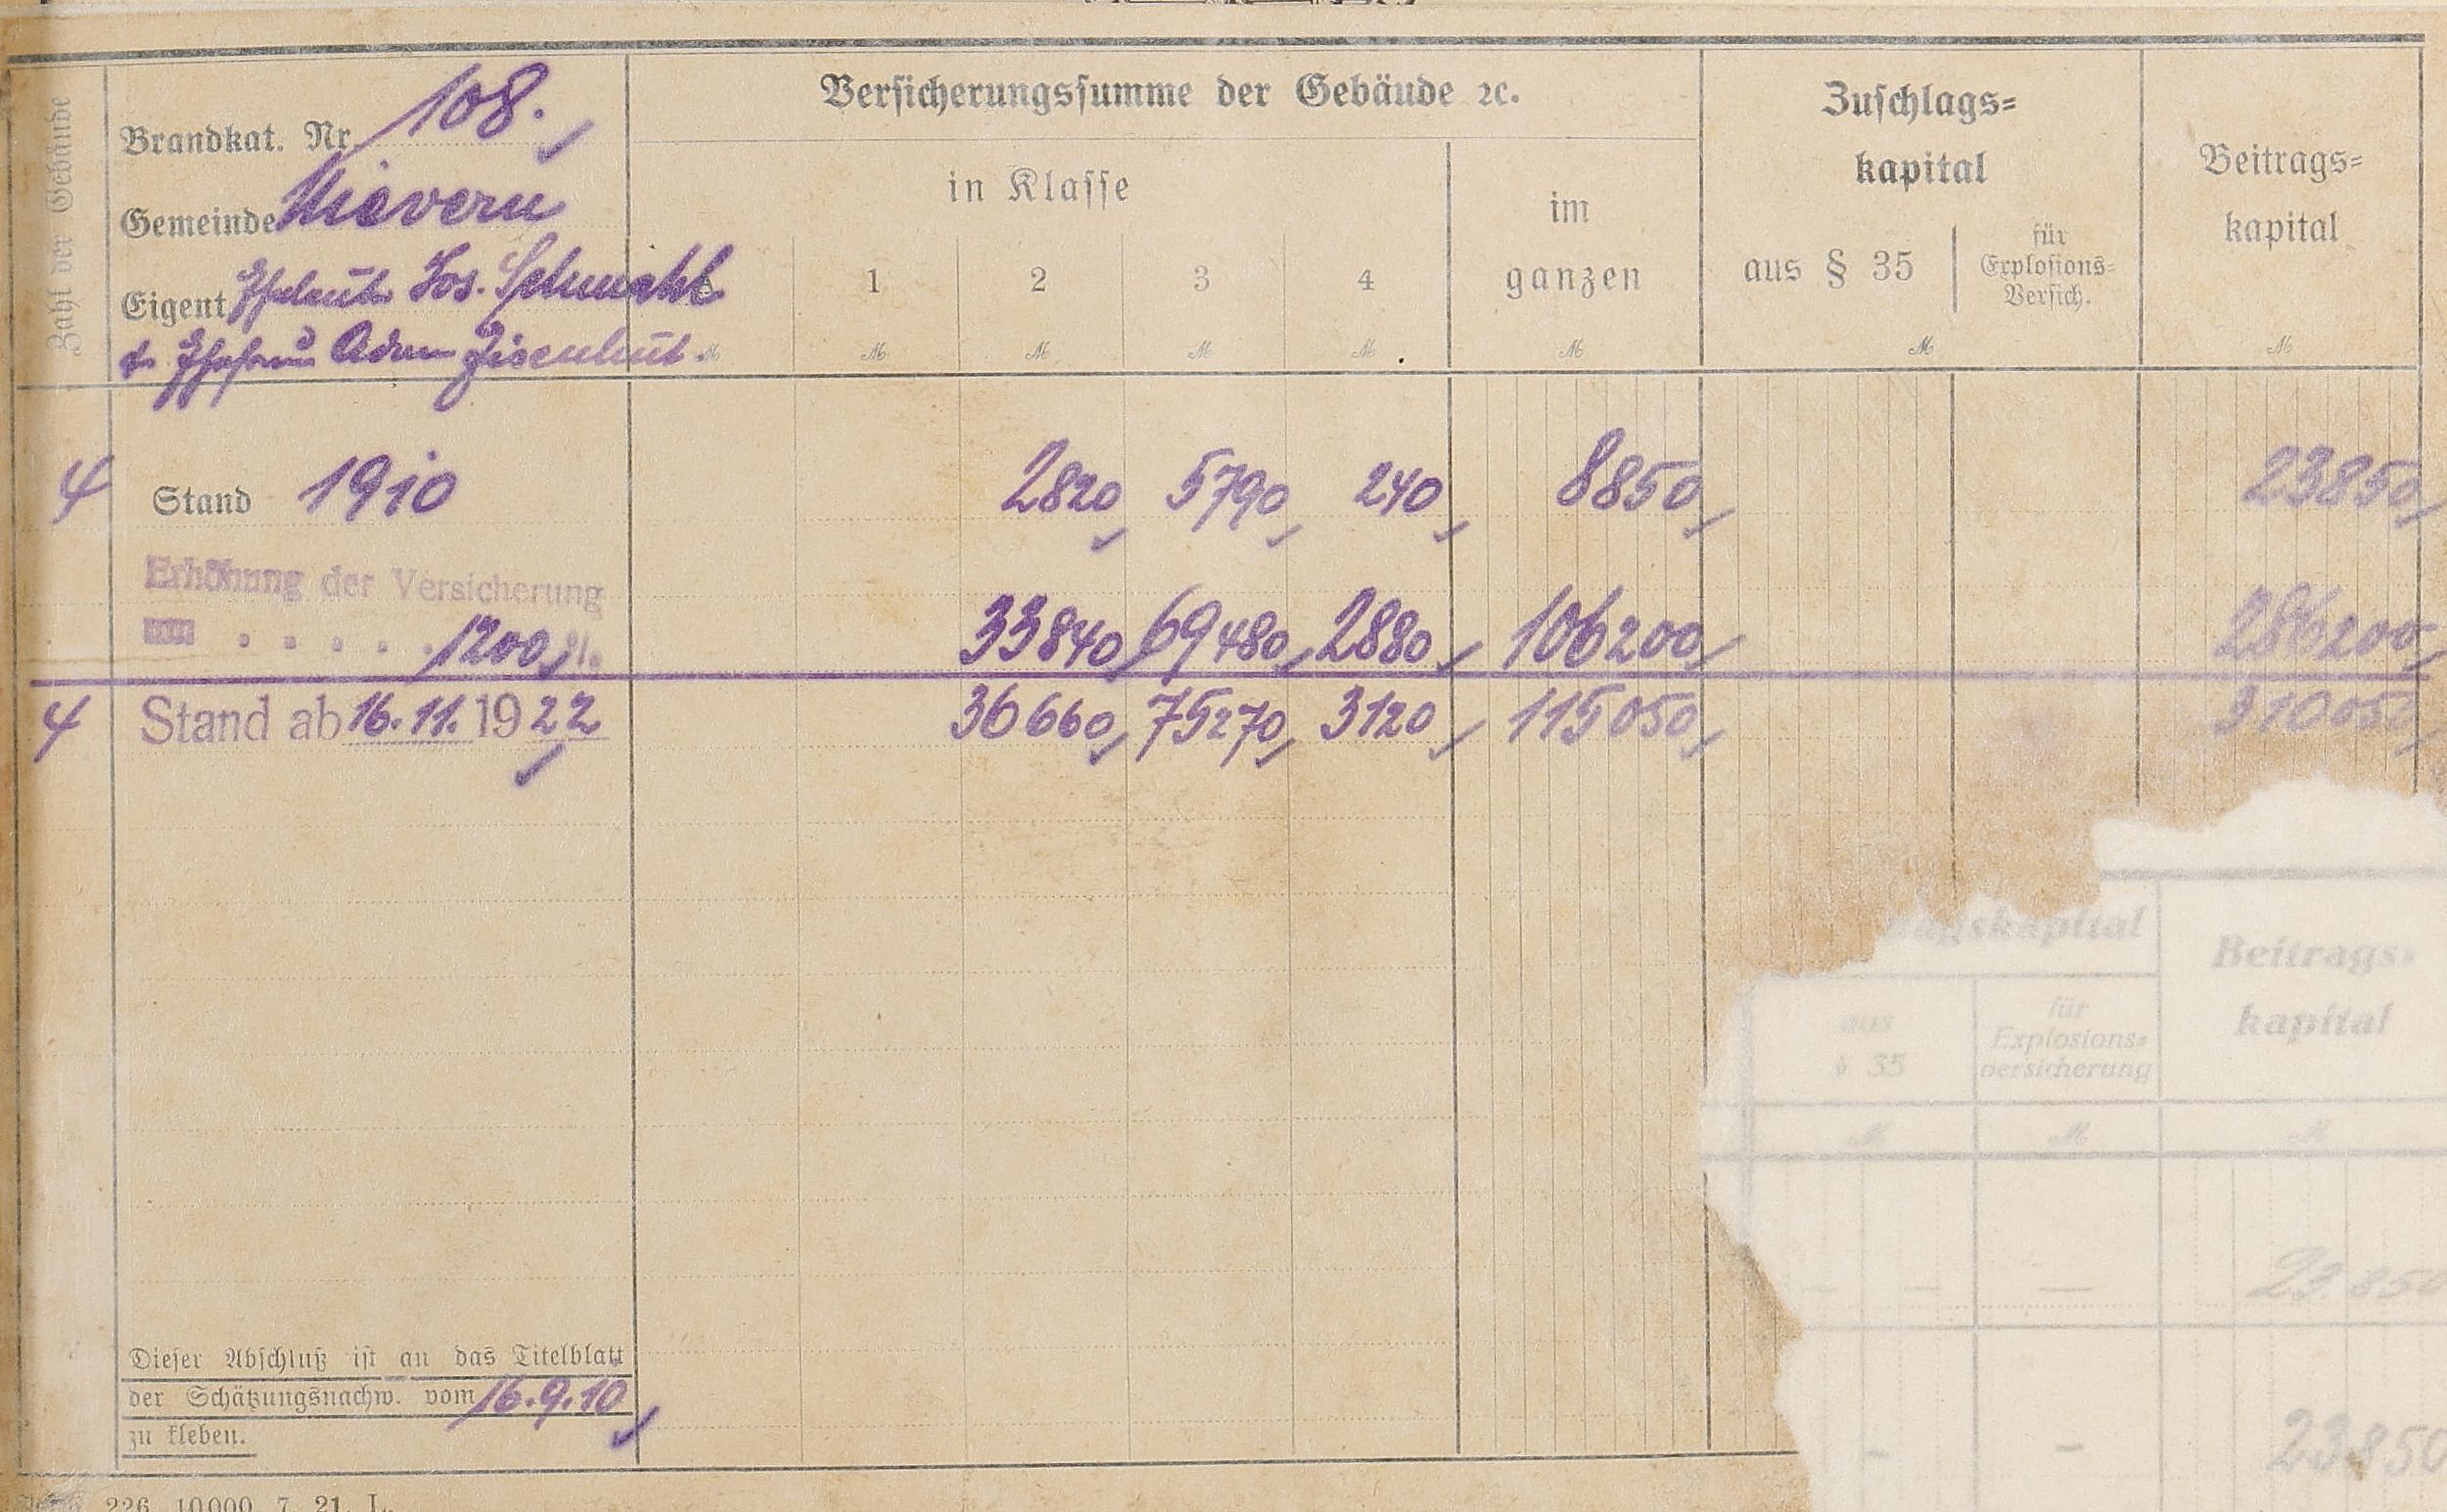 Zahl der Gebäude
Brandkat. Nr. 108.
Gemeinde Mievern
Eigent. Eheleute Jos. Schmahl
+ Ehefrau Adam Eisenhut.
Versicherungssumme der Gebäude ꝛc.
in Klasse
1 2 3 4
im
ganzen
Zuschlags=
kapital
aus § 35
für
Explosions=
Versich.
Beitrags=
kapital
M M M M M M M M
4 Stand 1910 2820 5790 240 8850 23850
Erhöhung der Versicherung
um . . . . . 1200 % 33840 69480 2880 106200 286200
4 Stand ab 16.11.1922 36660 75270 3120 115050 310050
Dieser Abschluß ist an das Titelblatt
der Schätzungsnachw. vom 16.9.10
zu kleben.
226 10000 7. 21. L.
agskapital
Beitrags=
kapital
aus
§ 35
für
Explosions=
versicherung
M M M
— — — 23.850
- - 23850